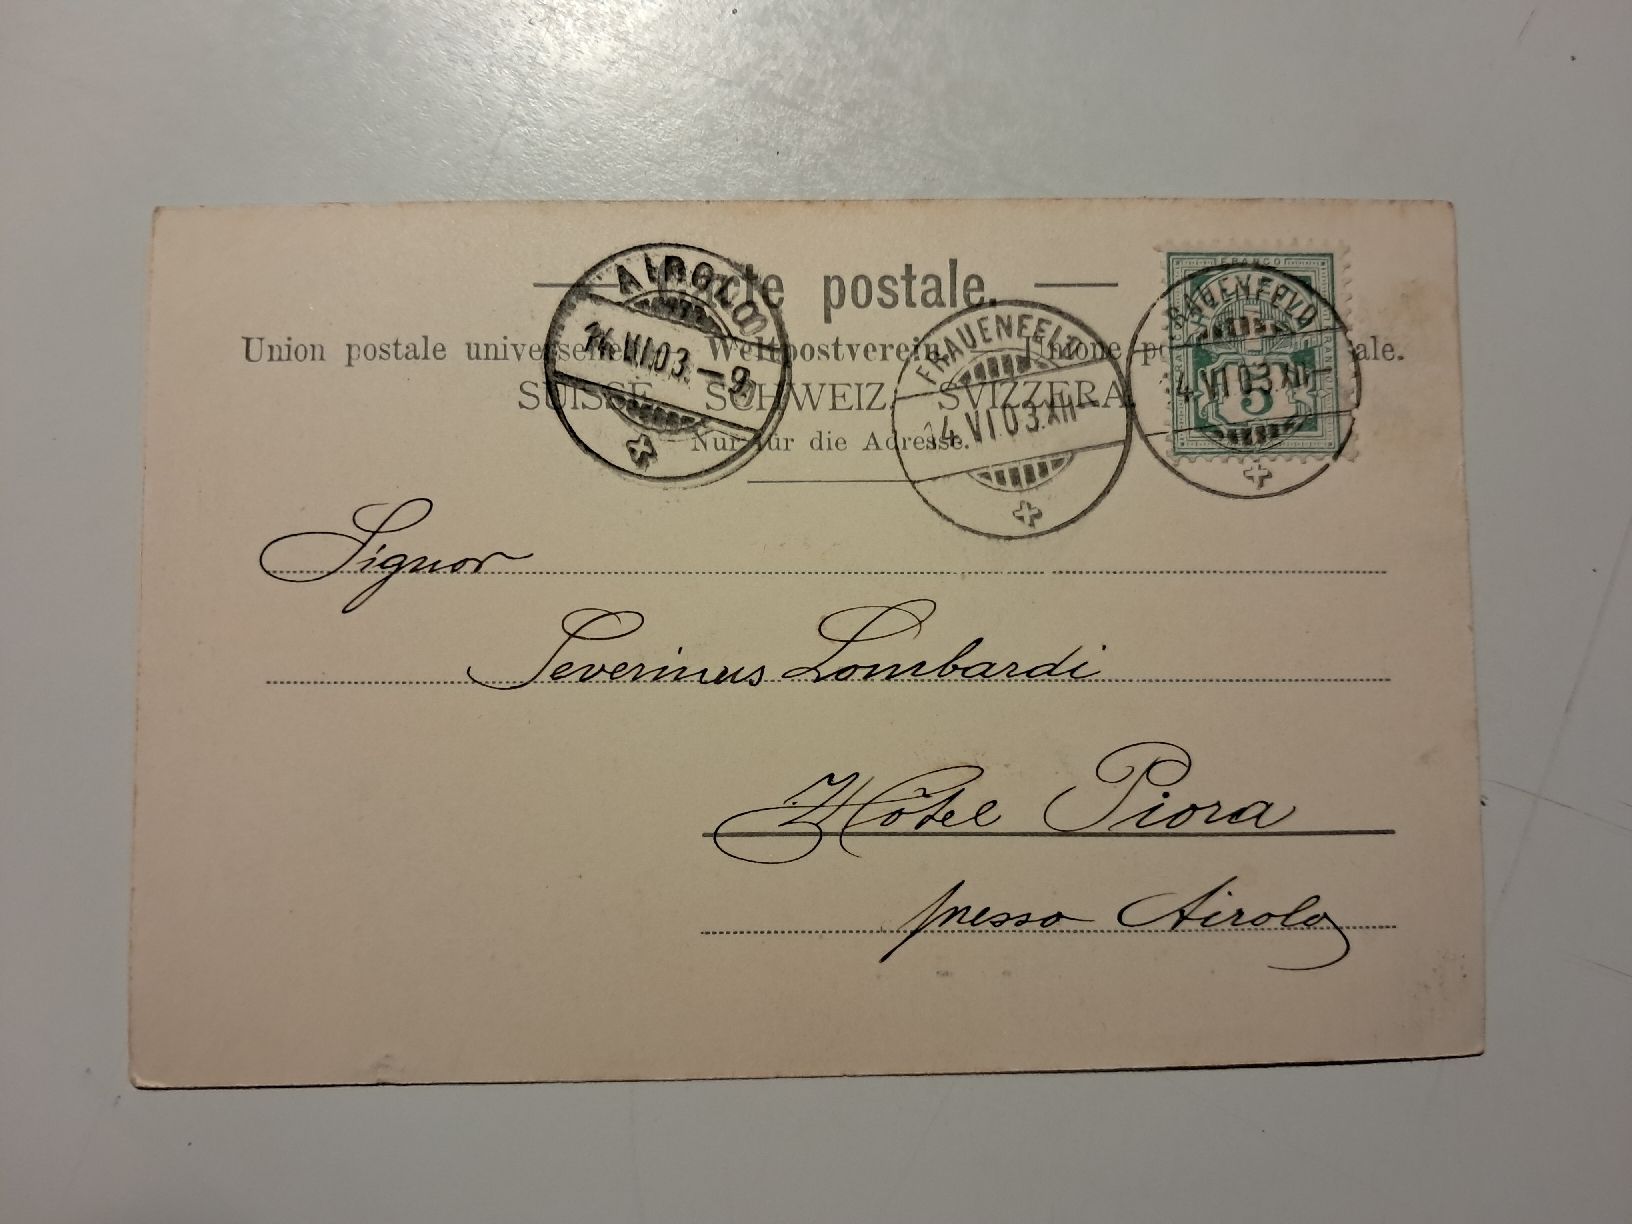 Carte postale.
Union postale universelle. Weltpostverein. Unione postale universale.
SUISSE. SCHWEIZ. SVIZZERA.
Nur für die Adresse.
AIROLO
14.VI.03.-9
FRAUENFELD
14.VI.03.XII-
FRAUENFELD
14.VI.03.XII-
FRANCO
5
Signor
Severinus Lombardi
Hôtel Piora
presso Airolo